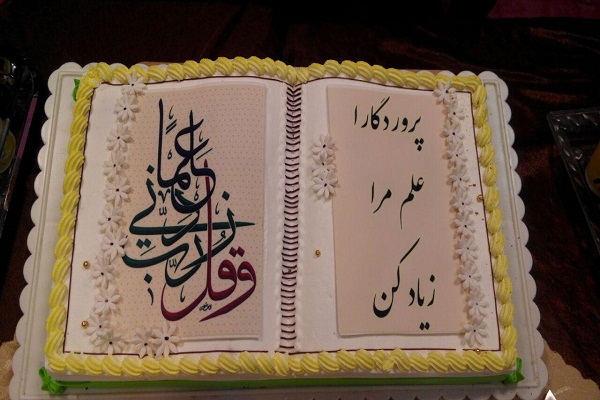 پروردگارا
علم مرا
زیاد کن
وقل رب زدنی علما